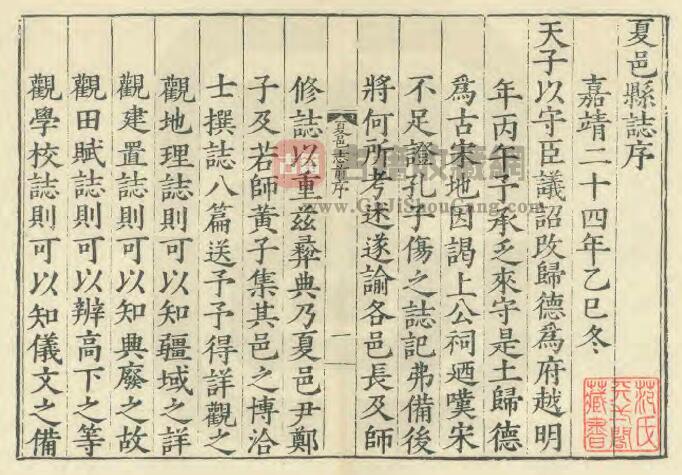 夏邑縣誌序
嘉靖二十四年乙巳冬
天子以守臣議詔改歸德為府越明
年丙午予承乏來守是土歸德
為古宋地因謁上公祠廼嘆宋
不足證孔子傷之誌記弗備後
將何所考述遂諭各邑長及師
夏邑志前序
一
修誌以重茲彝典乃夏邑尹鄭
子及若師黃子集其邑之博洽
士撰誌八篇送予予得詳觀之
觀地理誌則可以知疆域之詳
觀建置誌則可以知典廢之故
觀田賦誌則可以辨高下之等
觀學校誌則可以知儀文之備
范氏天一閣藏書
古書收藏網
www.GuJiShouCang.com